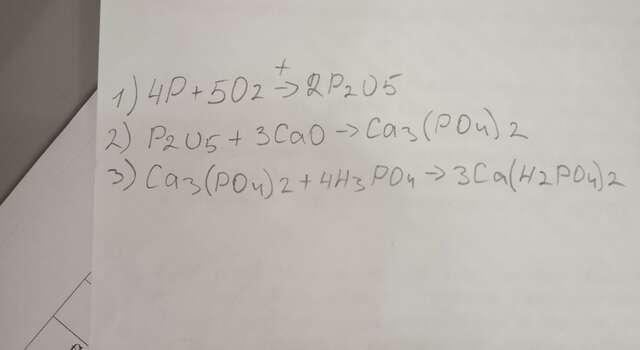 1) 4P + 5O2 →ᵗ 2P2O5
2) P2O5 + 3CaO → Ca3(PO4)2
3) Ca3(PO4)2 + 4H3PO4 → 3Ca(H2PO4)2